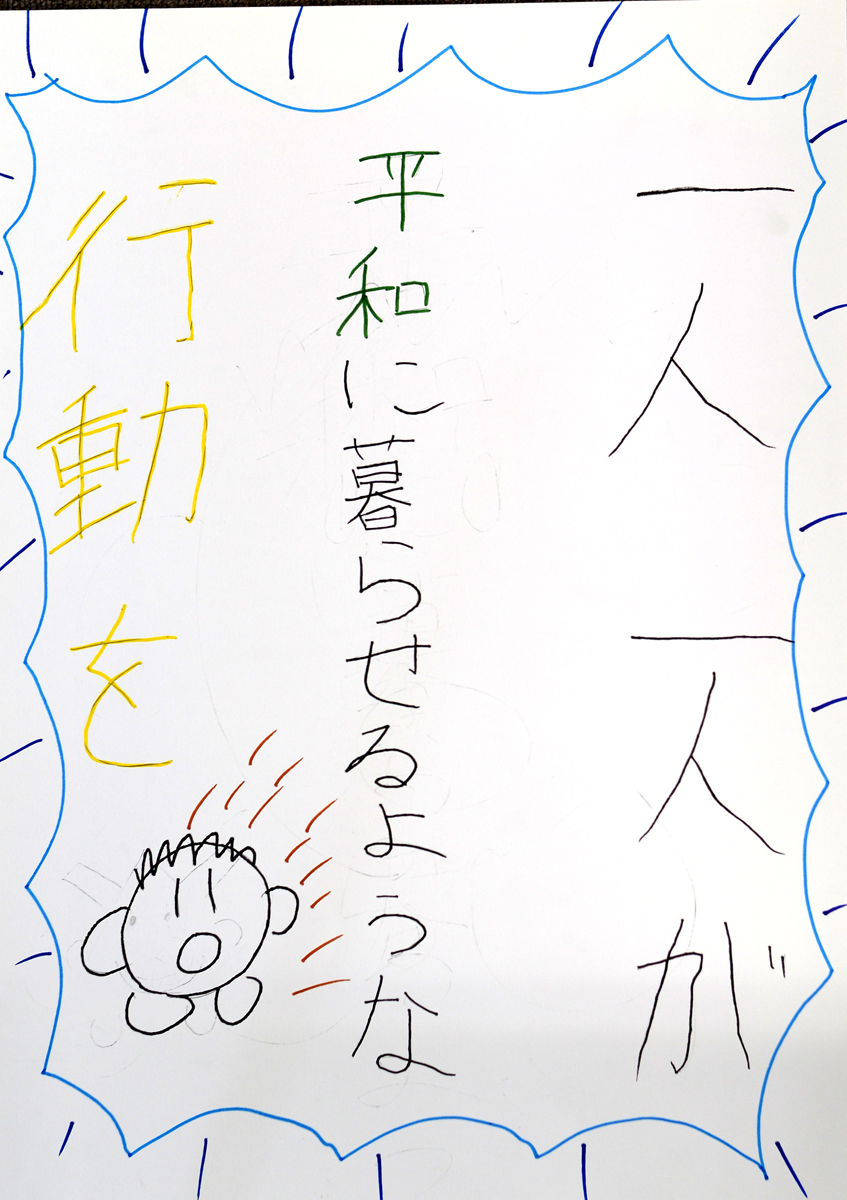 一人一人が
平和に暮らせるような
行動を